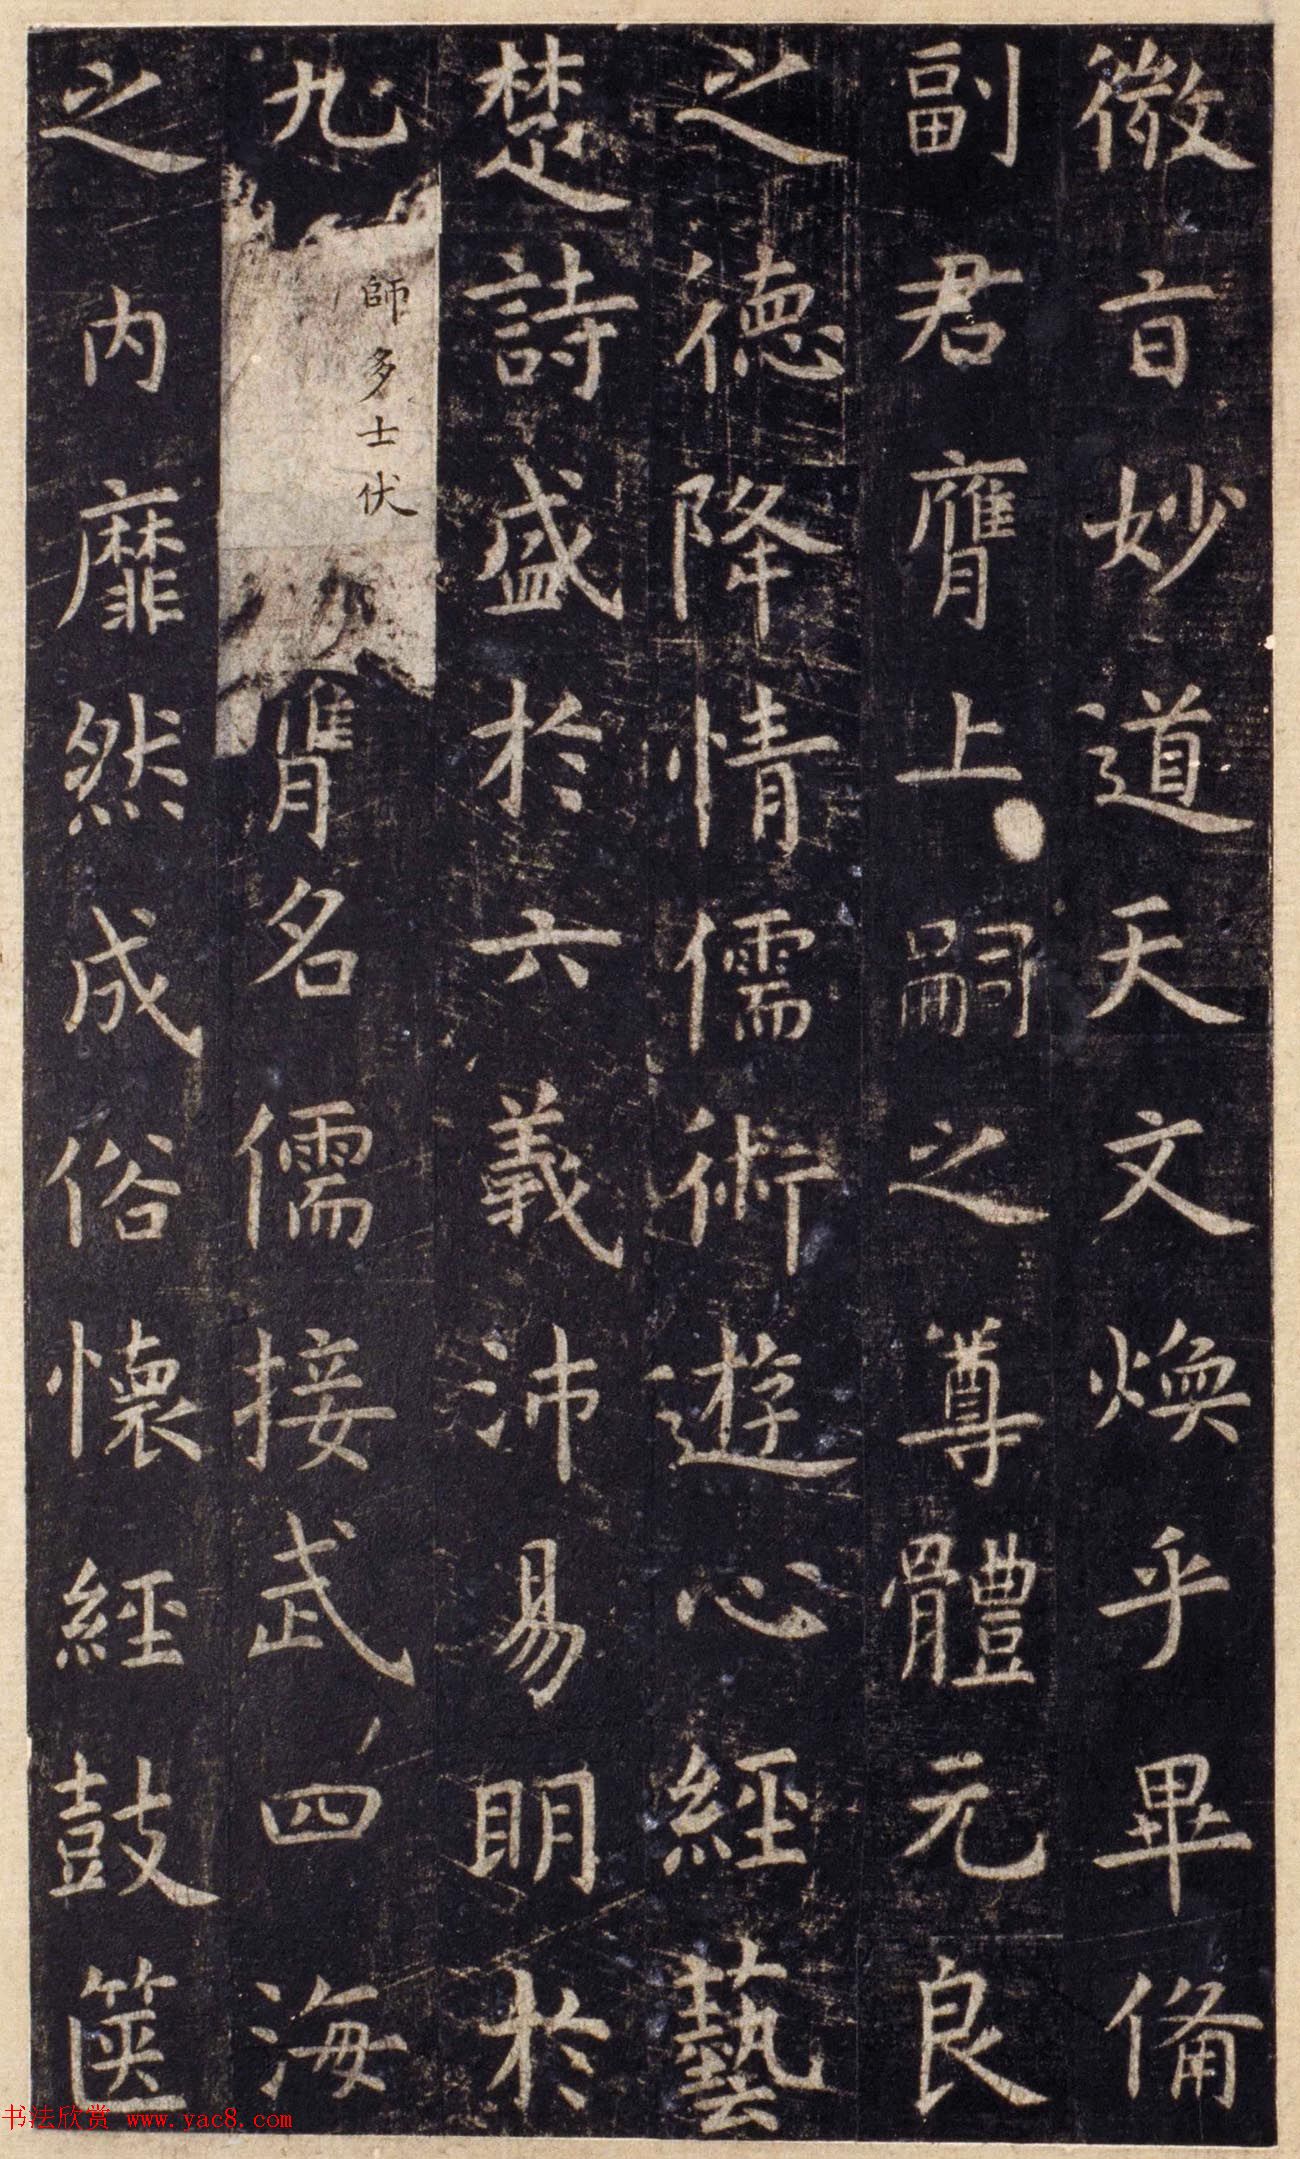 微旨妙道天文煥乎畢備
副君膺上嗣之尊體元良
之德降情儒術遊心經藝
楚詩盛於六義沛易明於
九
師多士伏
膺名儒接武四海
之内靡然成俗懷經鼓篋
书法欣赏 www.yac8.com